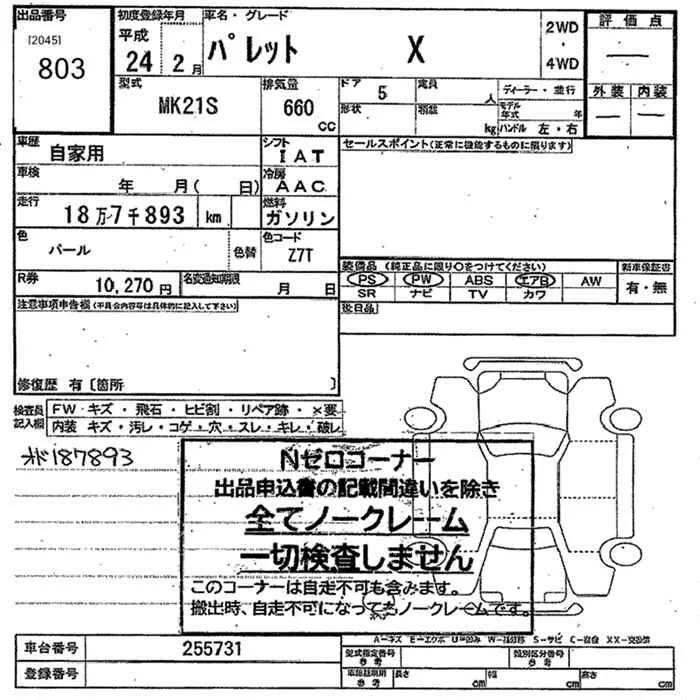 出品番号
[2045]
803
初度登録年月
平成
24 2月
車名・グレード
パレット X
2WD
・
4WD
評価点
—
外装 内装
— —
型式
MK21S
排気量
660
CC
ドア 5
形状
定員 人
積載 kg
ディーラー・並行
モデル年式 年
ハンドル 左・右
車歴
自家用
シフト
IAT
セールスポイント(正常に機能するものに限ります)
車検
年 月( 日)
冷房
AAC
走行
18万7千893 km
燃料
ガソリン
色
パール
色替
色コード
Z7T
R券
10,270円
名変通知期限
月 日
装備品 (純正品に限り○をつけてください)
PS PW ABS エアB AW
SR ナビ TV カワ
新車保証書
有・無
後日品
注意事項申告欄(不具合内容等は具体的に記入して下さい)
修復歴 有〔箇所 〕
検査員記入欄
FW キズ・飛石・ヒビ割・リペア跡・×要
内装 キズ・汚レ・コゲ・穴・スレ・キレ・破レ
187893
Nゼロコーナー
出品申込書の記載間違いを除き
全てノークレーム
一切検査しません
このコーナーは自走不可も含みます。
搬出時、自走不可になってもノークレームです。
車台番号
255731
登録番号
A-キズ E-エクボ U-凹み W-補修跡 S-サビ C-腐食 XX-交換済
型式指定番号
参考
類別区分番号
参考
車検証期間
参考
長さ cm
幅 cm
高さ cm